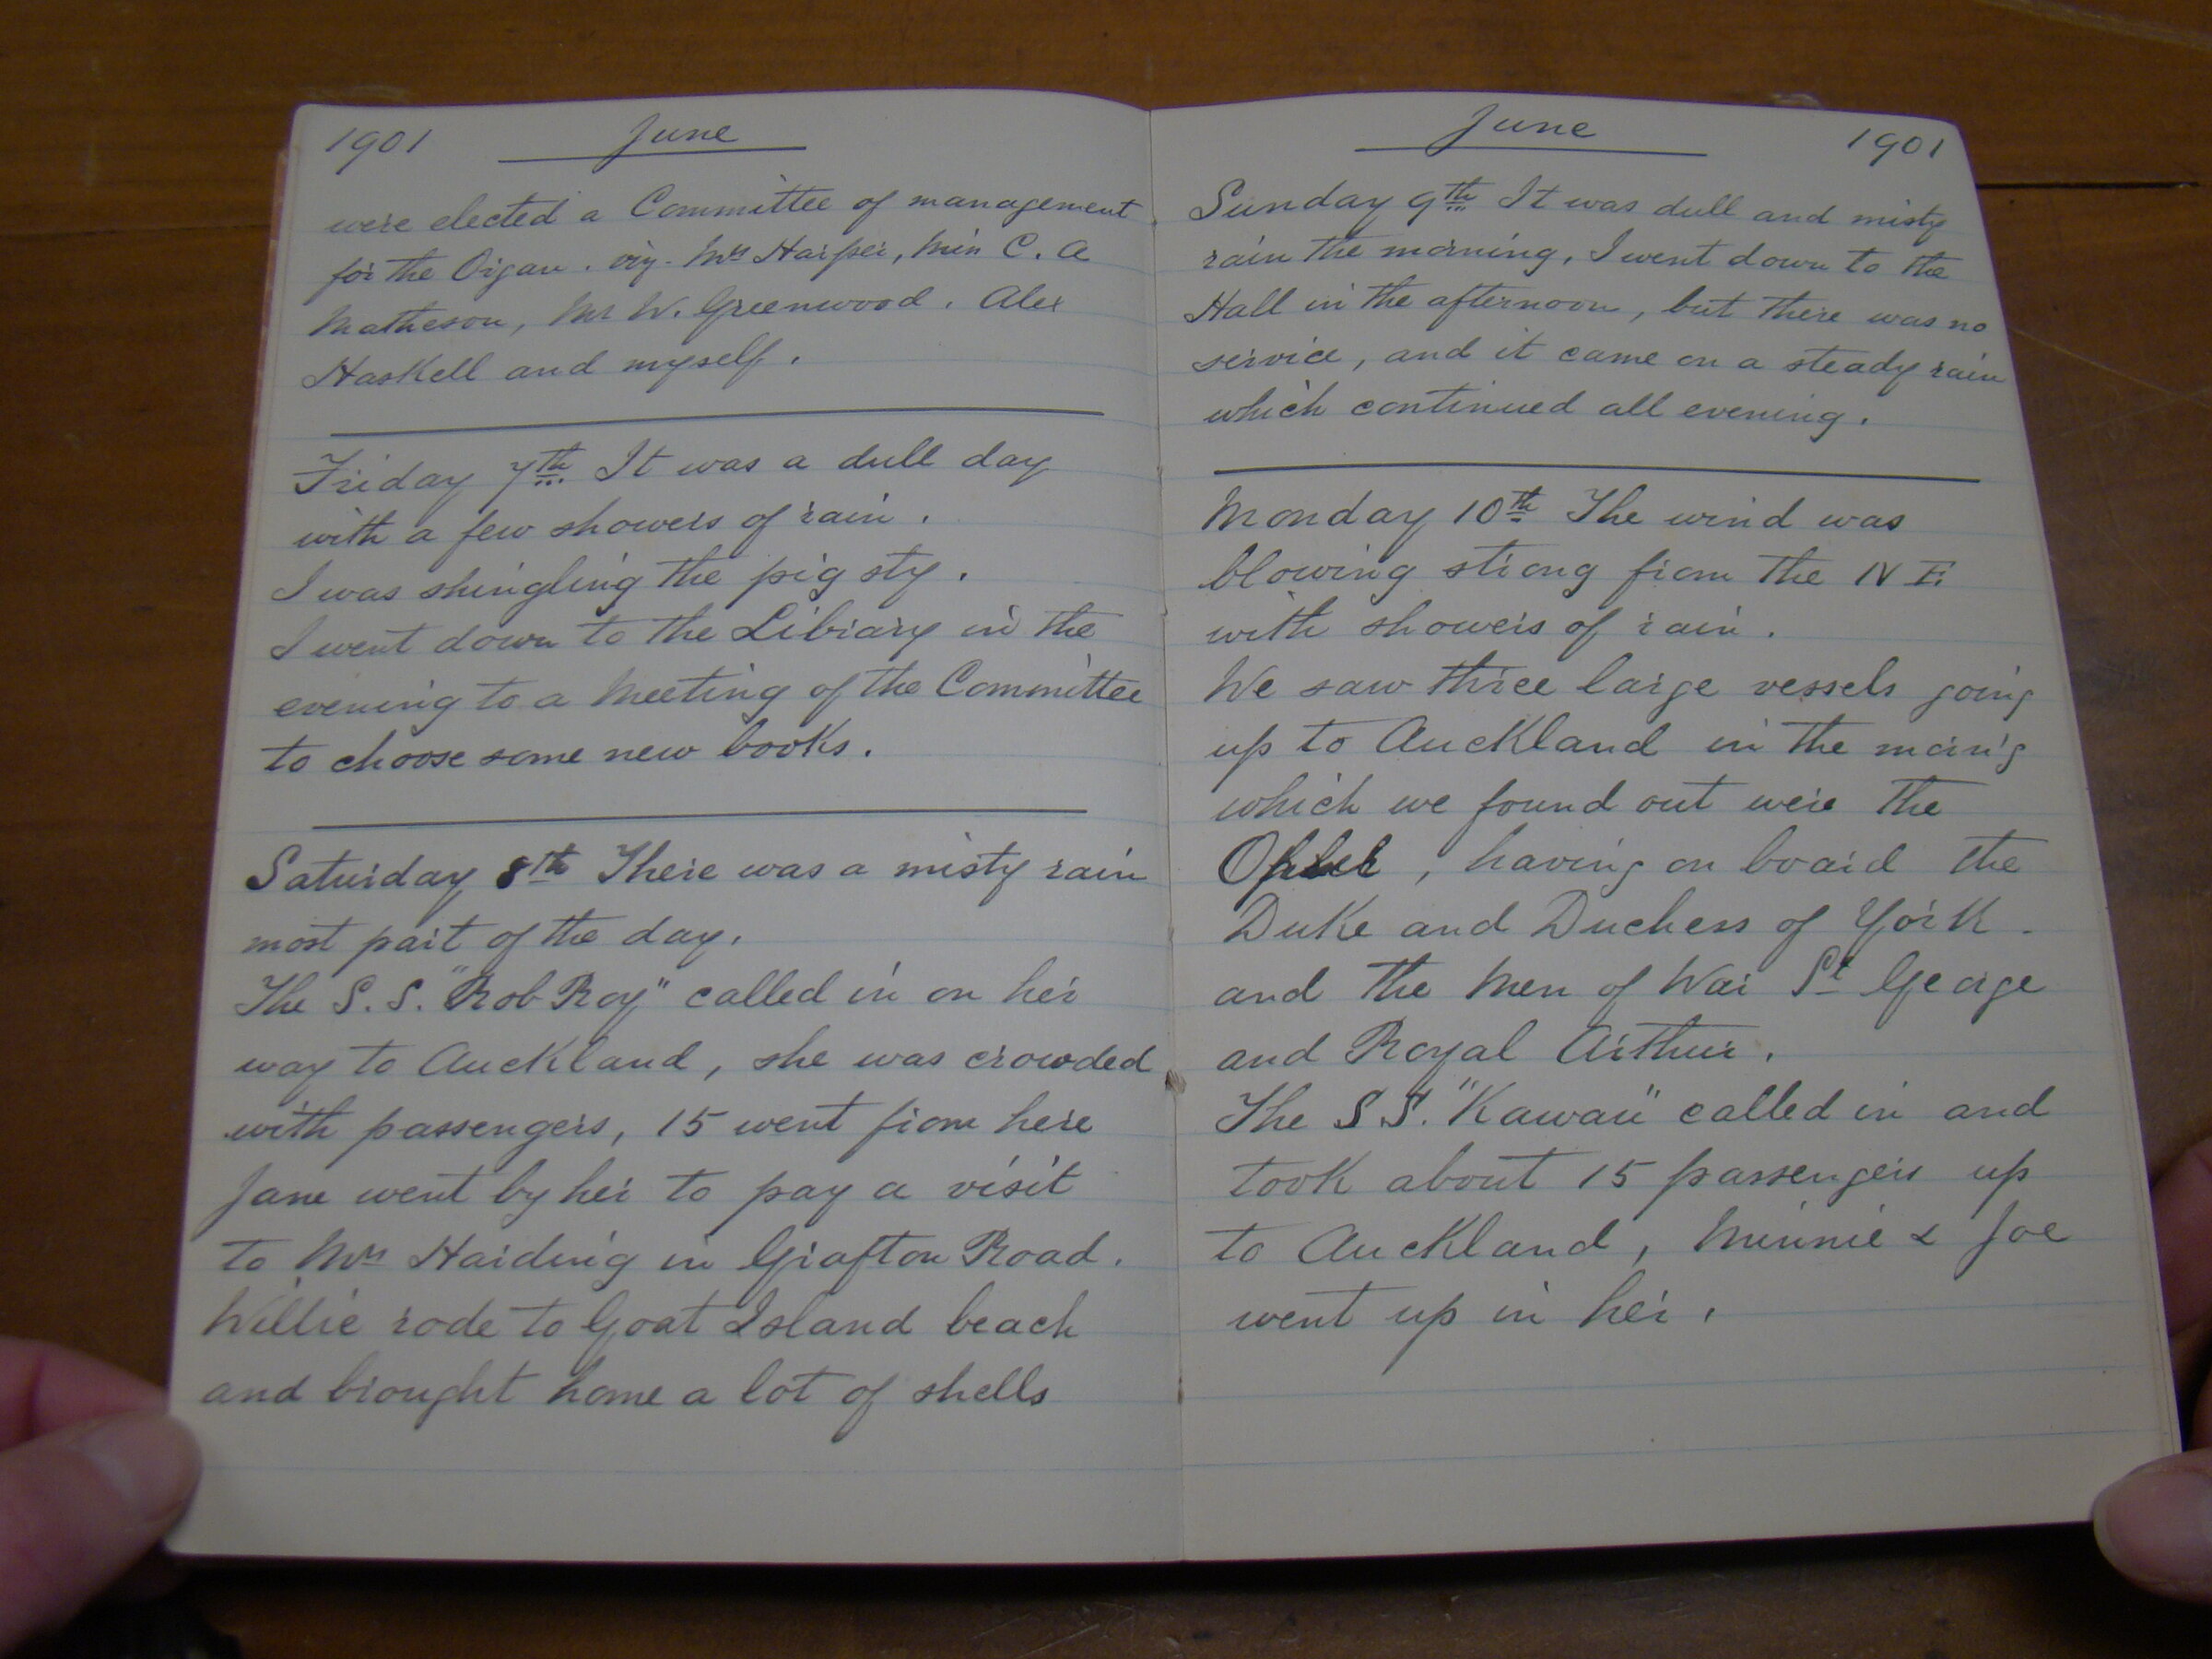 1901 June
were elected a Committee of management
for the Organ. viz. Mrs Harper, Miss C. A
Matheson, Mr W. Greenwood. Alex
Haskell and myself.
Friday 7th It was a dull day
with a few showers of rain.
I was shingling the pig sty.
I went down to the Library in the
evening to a Meeting of the Committee
to choose some new books.
Saturday 8th There was a misty rain
most part of the day.
The S.S. "Rob Roy" called in on her
way to Auckland, she was crowded
with passengers, 15 went from here
Jane went by her to pay a visit
to Mrs Harding in Grafton Road.
Willie rode to Goat Island beach
and brought home a lot of shells
June 1901
Sunday 9th It was dull and misty
rain the morning, I went down to the
Hall in the afternoon, but there was no
service, and it came on a steady rain
which continued all evening.
Monday 10th The wind was
blowing strong from the N E.
with showers of rain.
We saw three large vessels going
up to Auckland in the morn'g
which we found out were the
Ophir, having on board the
Duke and Duchess of York.
and the Men of War St George
and Royal Arthur.
The S S. "Kawau" called in and
took about 15 passengers up
to Auckland, Minnie & Joe
went up in her.